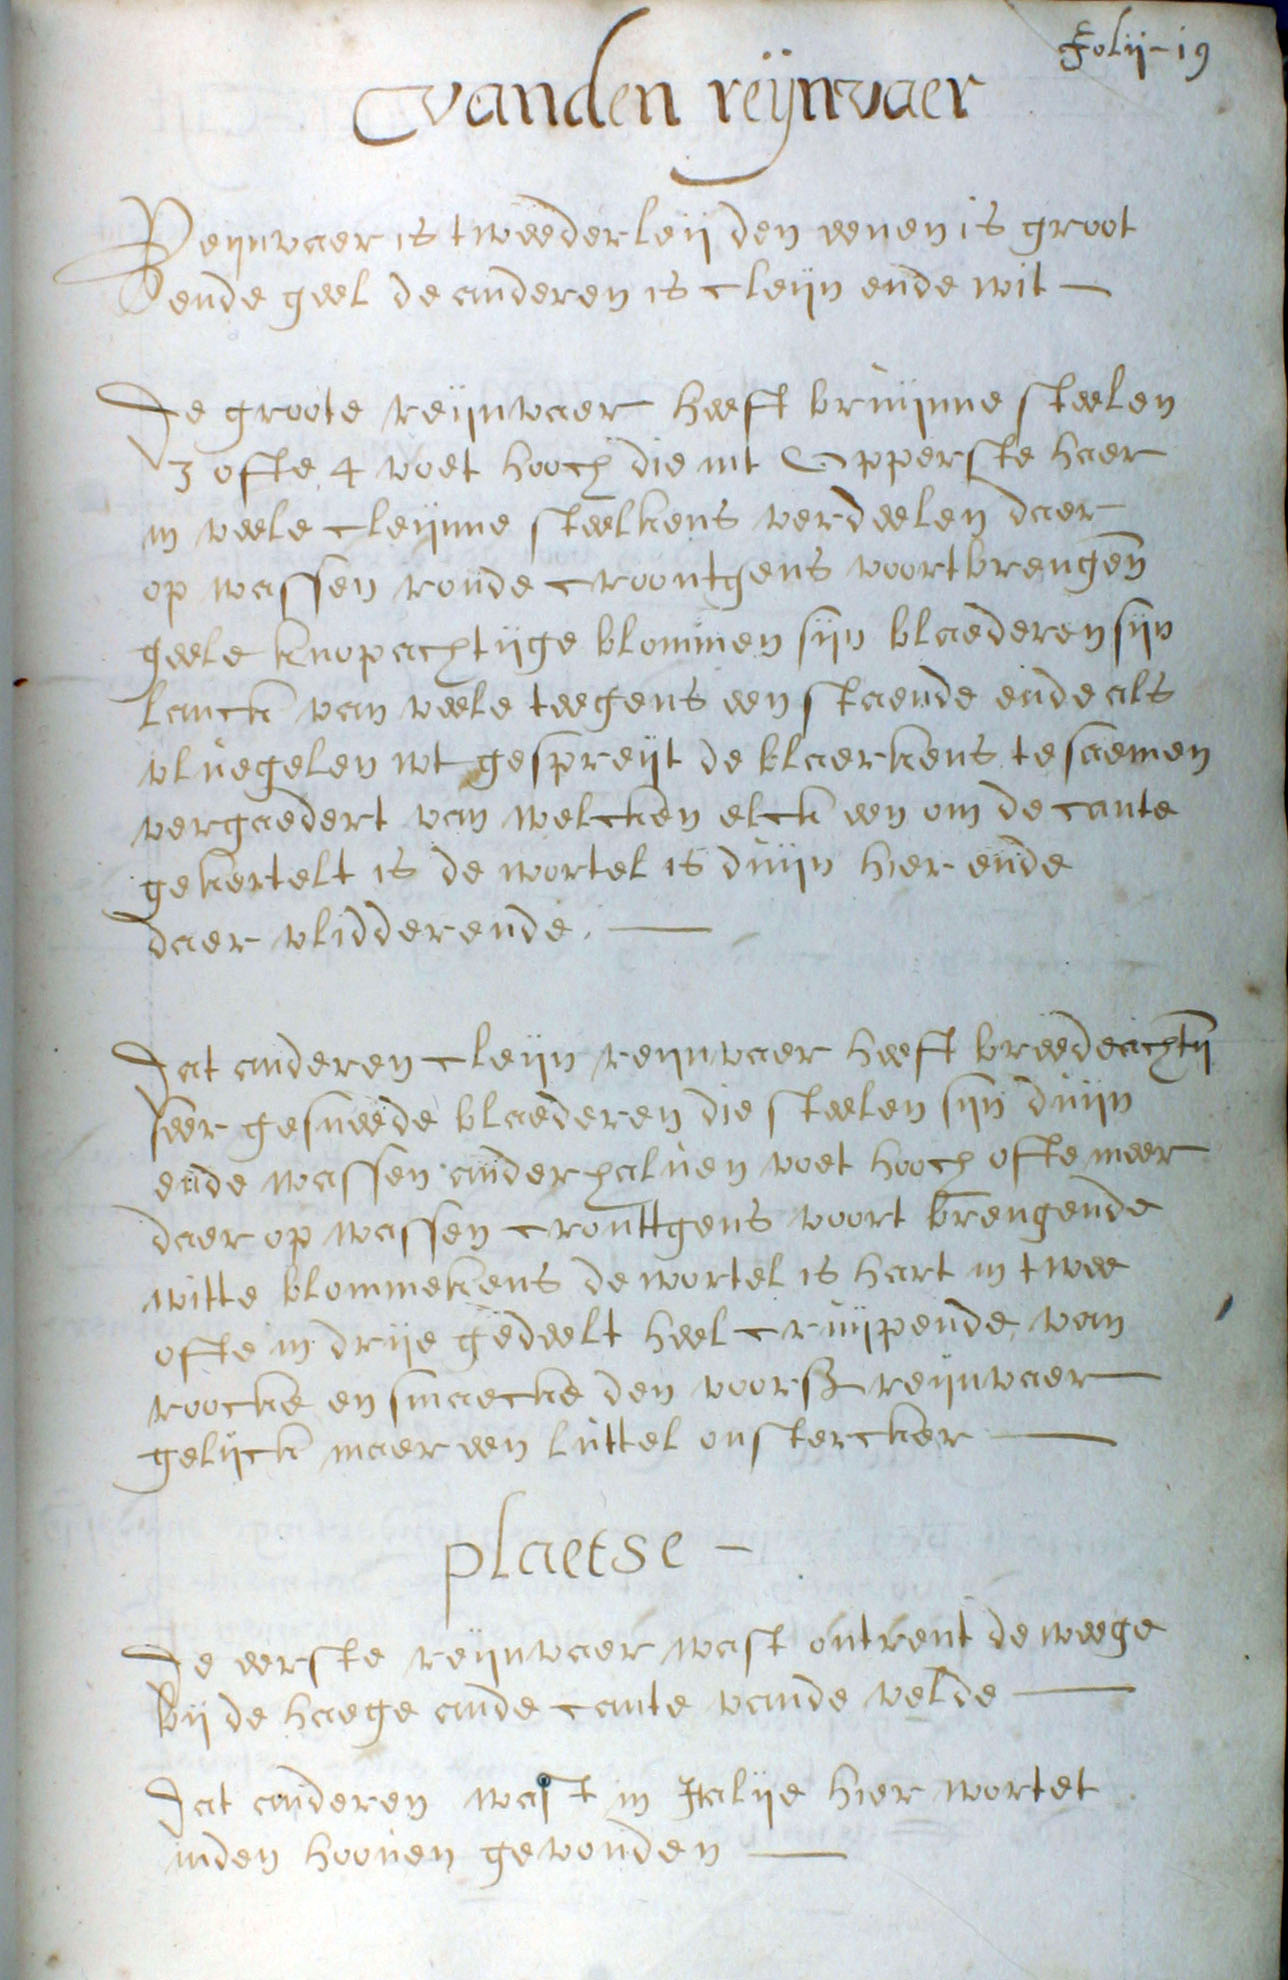 Folij-19
vanden reijnvaer
Reijnvaer is tweederleij den eenen is groot
ende geel de anderen is cleijn ende wit —
De groote reijnvaer heeft bruijnne steelen
3 ofte 4 voet hooch die int Opperste haer
in veele cleijnne steelkens verdeelen daer
op wassen ronde croontgens voortbrengen
geele knopachtijge blommen sijn blaederen sijn
lanck van veele teegens een staende ende als
vluegelen wt gespreijt de blaerkens tesaemen
vergaedert van welcken elck een om de cante
gekertelt is de wortel is duijn hier ende
daer vlidderende. —
Dat anderen cleijn reijnvaer heeft breedeachtij
seer gesneede blaederen die steelen sijn duijn
ende wassen anderhaluen voet hooch ofte meer
daer op wassen cronttgens voort brengende
witte blommekens de wortel is hart in twee
ofte in drije gedeelt heel cruijpende van
roocke en smaecke den voorsz reijnvaer
gelijck maer een luttel onstercker —
plaetse —
De eerste reijnvaer wast ontrent de weege
bij de haege ande cante vande velde —
Dat anderen wast in Italije hier wortet
inden hoouen gevonden —